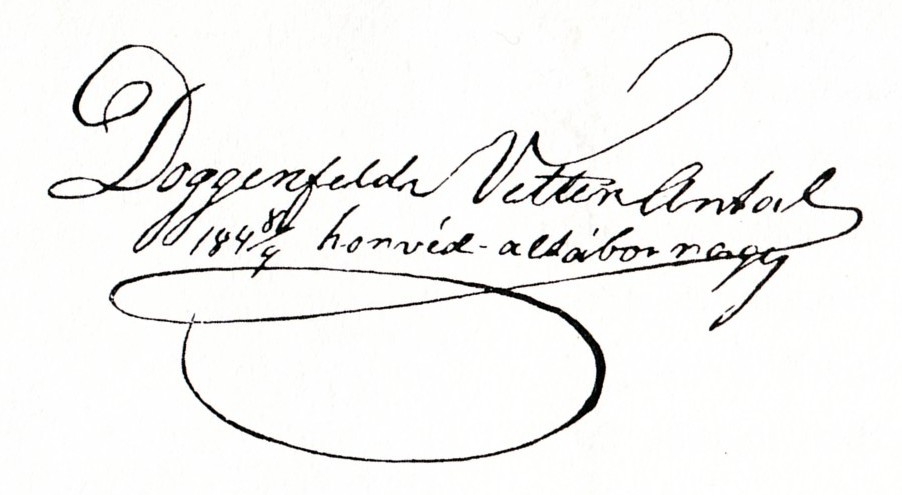 Doggenfeldi Vetter Antal
184 8/9 honvéd-altábornagy